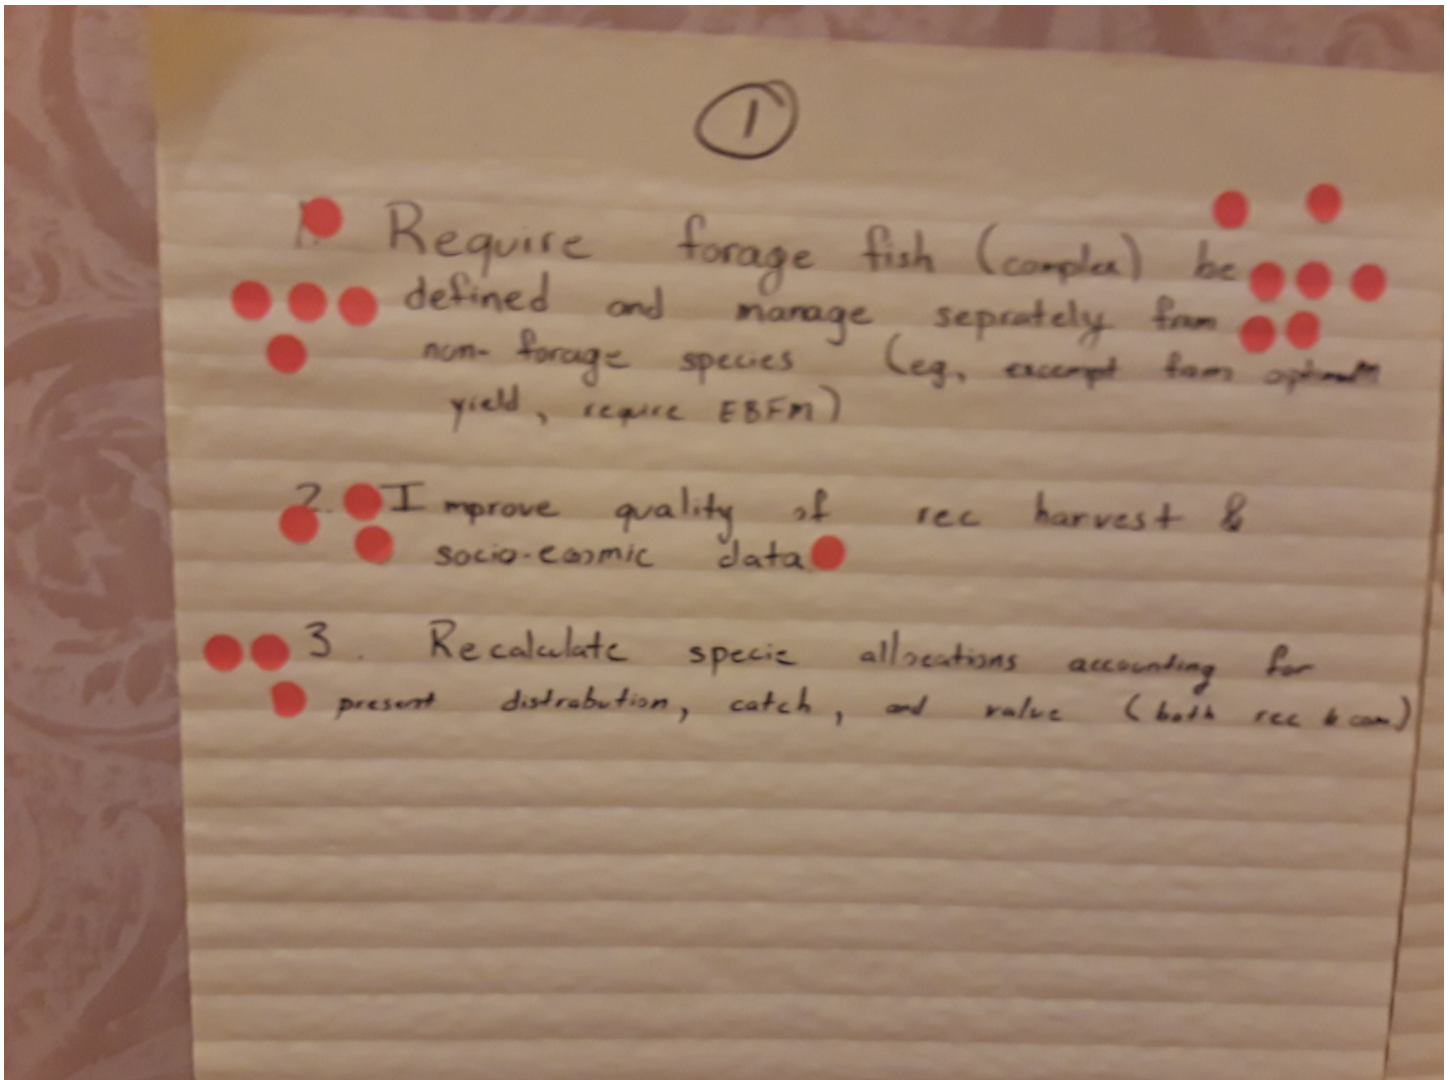 1
1. Require forage fish (complex) be
defined and manage seprately from
non-forage species (eg, excempt from optimum
yield, require EBFM)
2. Improve quality of rec harvest &
socio-ecomic data
3. Recalculate specie allocations accounting for
present distrabution, catch, and value (both rec & com)